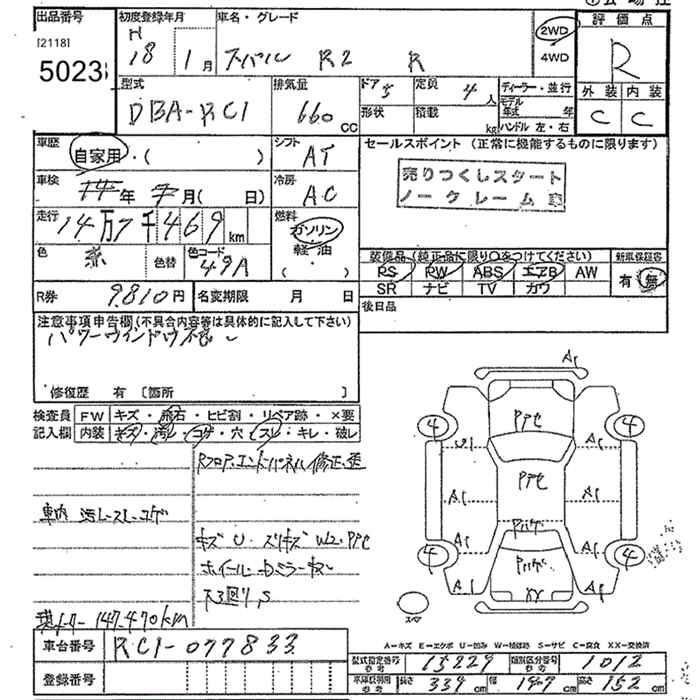 出品番号
[2118]
5023
初度登録年月
H
18 1月
車名・グレード
スバル R2 R
2WD
4WD
評価点
R
外装 内装
C C
型式
DBA-RC1
排気量
660 cc
ドア 5
形状
定員 4人
積載 kg
ディーラー・並行
モデル年式 年
ハンドル 左・右
車歴
自家用・( )
シフト
AT
セールスポイント (正常に機能するものに限ります)
売りつくしスタート
ノークレーム 車
車検
年 月( 日)
冷房
AC
走行
14万7千469 km
燃料
ガソリン
軽油
( ・ )
色
赤
色替
色コード
49A
装備品(純正品に限り○をつけてください)
PS PW ABS エアB AW
SR ナビ TV カワ
新車保証書
有・無
R券
9810円
名変期限 月 日
後日品
注意事項申告欄(不具合内容等は具体的に記入して下さい)
パワーウインドウ
修復歴 有 〔箇所 〕
検査員記入欄
FW キズ・飛石・ヒビ割・リペア跡・×要
内装 キズ・汚れ・コゲ・穴・スレ・キレ・破レ
Rフロア、エンドパネル修正、歪
車内 汚レ スレ コゲ
キズ U・スリキズ W2・
ホイール・ドアミラーキズ
下廻り、S
147,470km
車台番号 RC1-077833
登録番号
A1
Pアセ
4 4
U1 A1
A1 Pアセ A1
A1 A1
4 4
A1 XX A1
スペア
A-キズ E-エクボ U-凹み W-補修跡 S-サビ C-腐食 XX-交換済
型式指定番号 参考 15229 類別区分番号 参考 1012
車庫証明用 参考 長さ 339cm 幅 147cm 高さ 152cm